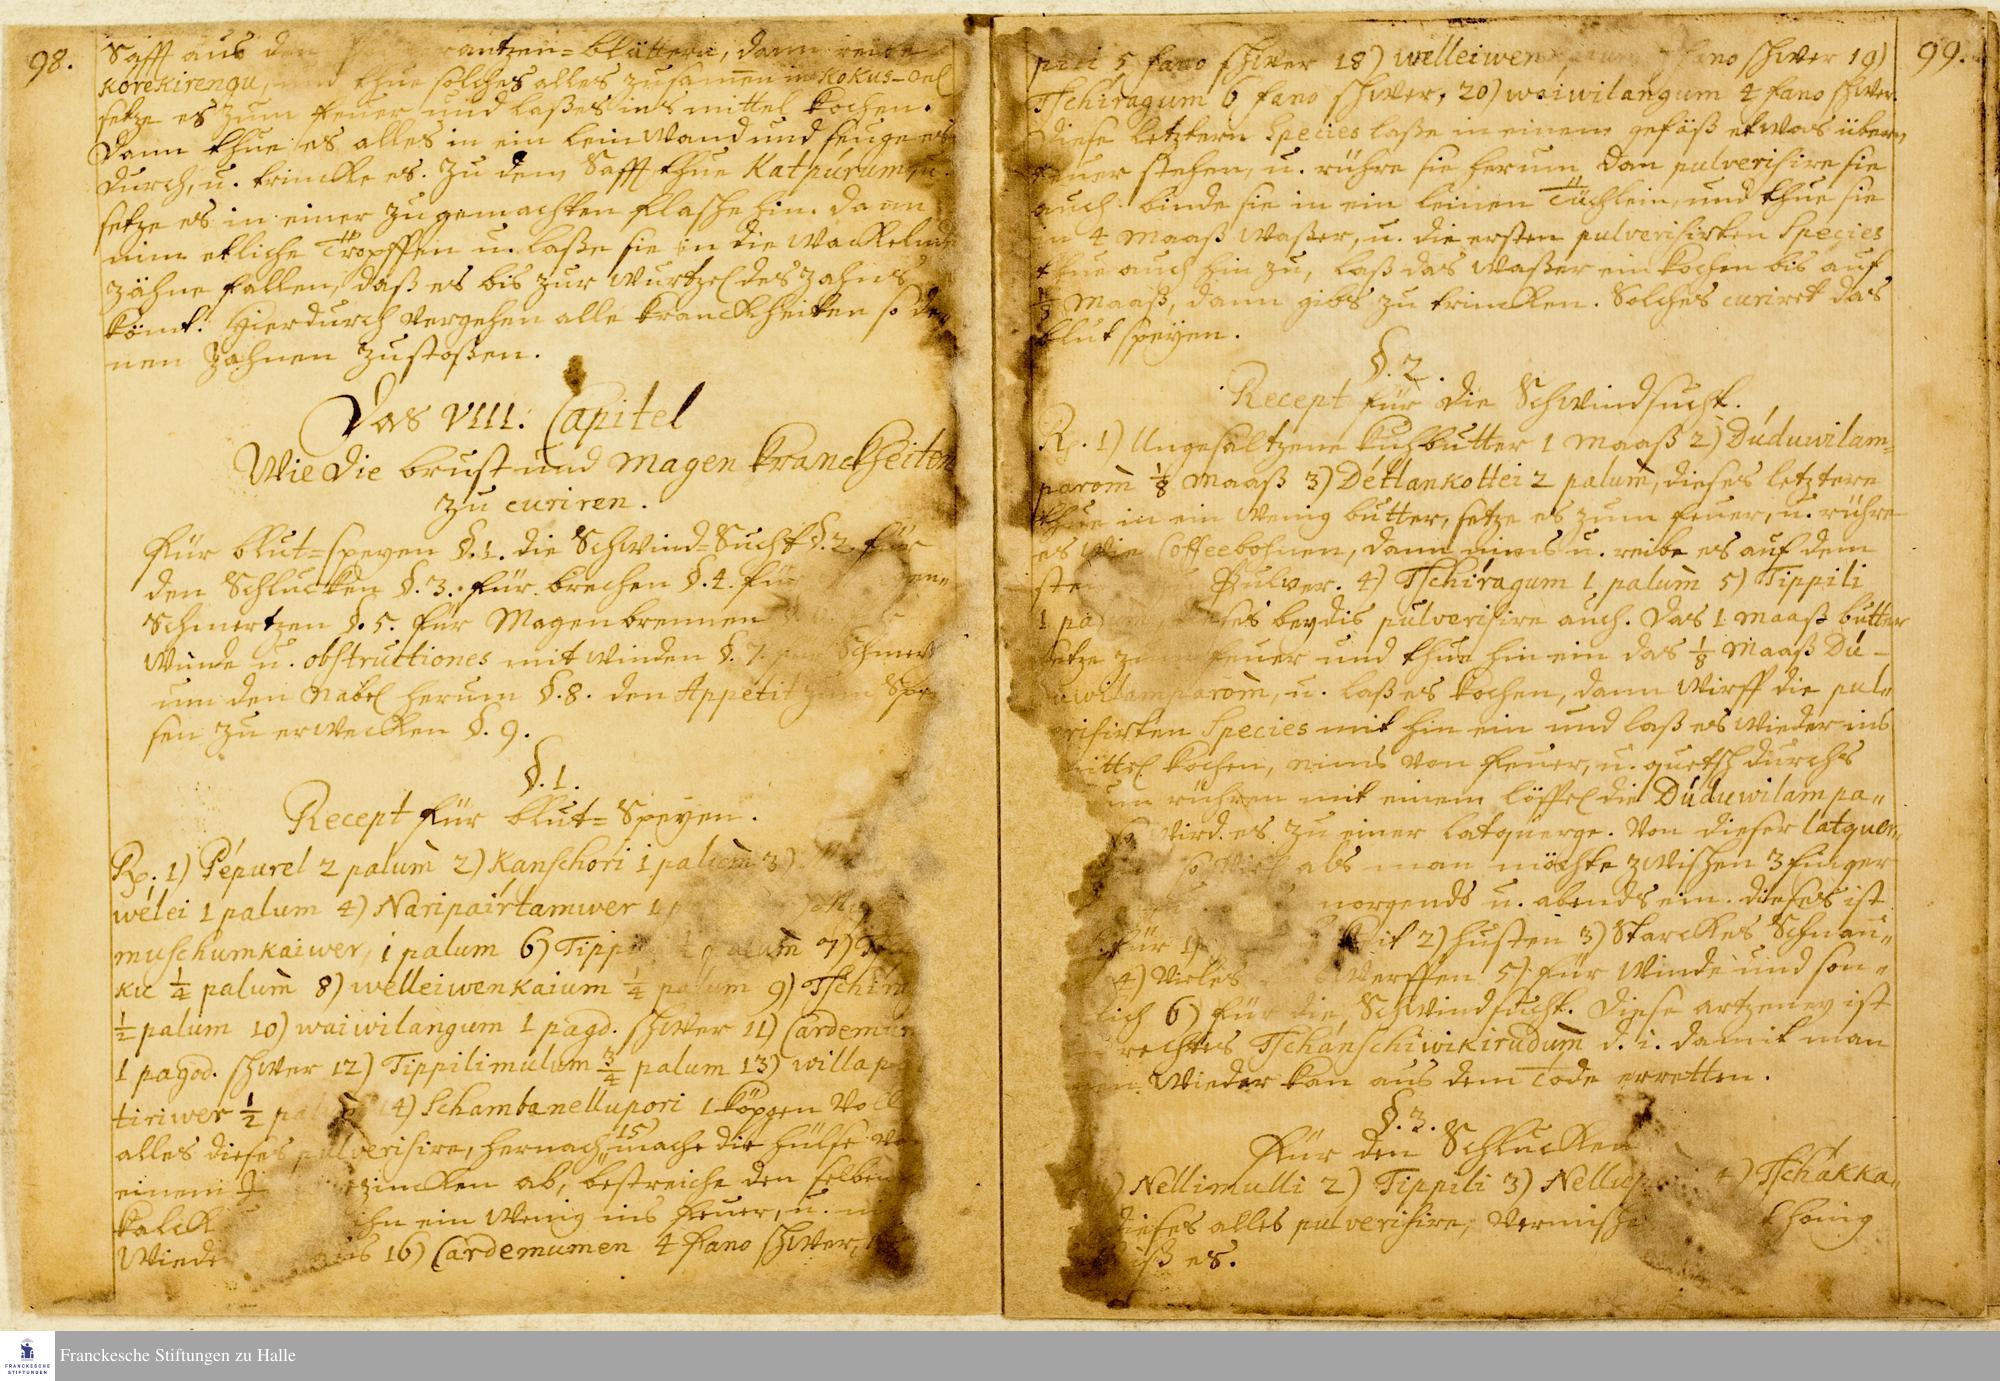 98.
Safft aus den rantzen=blättern, dann reibe
Korekirengu, und thue solches alles zusamen in Kokus=oel
setze es zum feuer und laß es ins mittel kochen.
Dann thue es alles in ein leinwand und seuge es
durch, u. trincke es. Zu dem Safft thue Katpúrum, u.
setze es in einer zugemachten flasche hin. Dann
nim etliche Tropffen u. laße sie in die wackelnde
zähne fallen, daß es bis zur wurtzel des zahns
kömt. Hierdurch vergehen alle kranckheiten so de-
nen Zahnen zustoßen.
Das VIII. Capitel
Wie die brust und magen kranckheiten
zu curiren.
für blut=speyen §.1. die Schwind=Sucht §.2. für
den Schlucken §.3. für brechen §.4. für
Schmertzen §.5. für Magenbrennen
Winde u. obstructiones mit winden §.7. Schmer
um den Nabel herum §.8. den Appetit zum Spei
sen zu erwecken §.9.
§.1.
Recept für blut=Speyen.
Rp. 1) Pépurel 2 palum̀ 2) Kanschori 1 palum̀ 3)
wélei 1 palum 4) Naripaírtamwer 1
muschumkaiwer, 1 palum 6) Tippi palum̀ 7)
kic ¼ palum̀ 8) welleiwenkaium ¼ palum 9) Tschira
½ palum 10) waiwilangum 1 pagd. schwer 11) Cardemum
1 pagod. schwer 12) Tippilimulum ¾ palum 13) willap
tiriwer ½ 14) Schambanellupori 1 köpgen voll
alles dieses pulverisire, hernach 15 mache die hülse von
einem zincken ab, bestreiche den selben
kalck ihn ein wenig ins feuer, u.
wiede aus 16) Cardemumen 4 fano schwer,
99.
pili 5 fano schwer 18) welleiwen fano schwer 19)
Tschíragum 6 fano schwer, 20) waiwilangum 4 fano schwer.
Diese letztern Species laße in einem gefäß etwas übern
feuer stehen, u. rühre sie herum. Dan pulverisire sie
auch. binde sie in ein leinen Tüchlein, und thue sie
in 4 Maaß waßer, u. die ersten pulverisirten Species
thue auch hin zu, laß das waßer ein kochen bis auf
Maaß, dann gibs zu trincken. Solches curiret das
blut speyen.
§.2.
Recept für die Schwindsucht.
Rp. 1) Ungesaltzene kuhbutter 1 Maaß 2) Dúduwilam=
parom̀ ⅛ Maaß 3) Détlankottei 2 palum̀, dieses letztere
thue in ein wenig butter, setze es zum feuer, u. rühre
es wie Coffeebohnen, dann nims u. reibe es auf dem
stei Pulver. 4) Tschíragum 1 palum̀ 5) Tippili
1 dieses beydes pulverisire auch. Das 1 Maaß butter
setze zum feuer und thue hin ein das ⅛ Maaß Dú-
duwilamparom̀, u. laß es kochen, dann wirff die pul-
verisirten Species mit hin ein und laß es wieder ins
mittel kochen, nims von feuer, u. quetsch durchs
um rühren mit einem löffel die Dúduwilampa-
so wird es zu einer latquerge. Von dieser latquer-
so viel als man möchte zwischen 3 finger
morgends u. abends ein. dieses ist
für 1) 2) husten 3) Starckes Schnau-
4) vieles werffen 5) für winde und son-
lich 6) für die Schwindsucht. Diese artzeney ist
rechtes Tschánschiwikirudum̀ d. i. damit man
wieder kan aus dem Tode erretten.
§.3.
für den Schlucken
1) Nellimulli 2) Tippili 3) 4) Tschákka-
dieses alles pulverisire, vermische honig
es.
Franckesche Stiftungen zu Halle
FRANCKESCHE
STIFTUNGEN